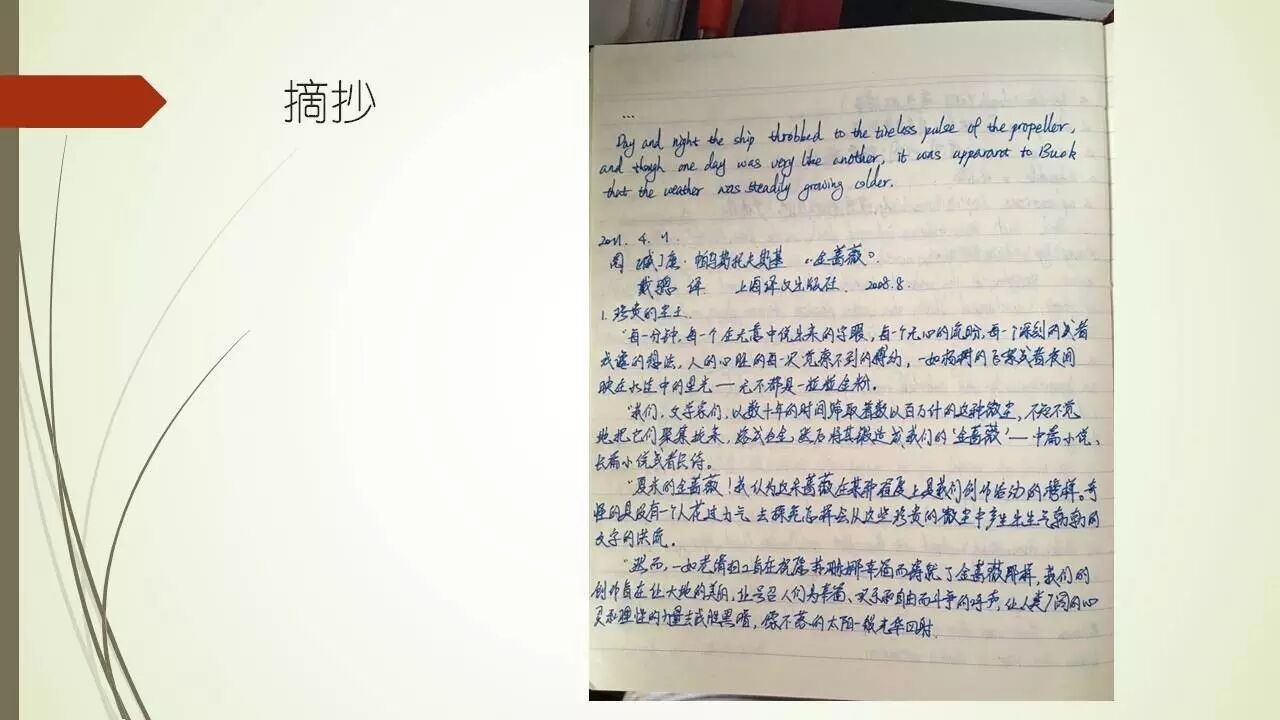 摘抄
...
Day and night the ship throbbed to the tireless pulse of the propeller,
and though one day was very like another, it was apparant to Buck
that the weather was steadily growing colder.
4. 7.
康·帕乌斯托夫斯基 《金蔷薇》.
戴骢 译 上海译文出版社. 2008.8.
1. 珍贵的尘土
“每一分钟,每一个在无意中说出来的字眼,每一个无心的流盼,每一个深刻的或者
戏谑的想法,人的心脏的每一次觉察不到的搏动,一如杨树的飞絮或者夜间
映在水洼中的星光——无不都是一粒粒金粉。
“我们,文学家们,以数十年的时间筛取着数以百万计的这种微尘,不知不觉
地把它们聚集拢来,熔成合金,然后将其锻造成我们的‘金蔷薇’——中篇小说、
长篇小说或者长诗。
“夏米的金蔷薇!我认为这朵蔷薇在某种程度上是我们创作活动的榜样。奇
怪的是没有一个人花过力气去探究怎样会从这些珍贵的微尘中产生出生气勃勃的
文字的洪流。
“然而,一如老清扫工旨在祝愿苏珊娜幸福而铸就了金蔷薇那样,我们的
创作旨在让大地的美丽,让号召人们为幸福、欢乐和自由而斗争的呼声,让人类广阔的心
灵和理性的力量去战胜黑暗,像不落的太阳一般光华四射.